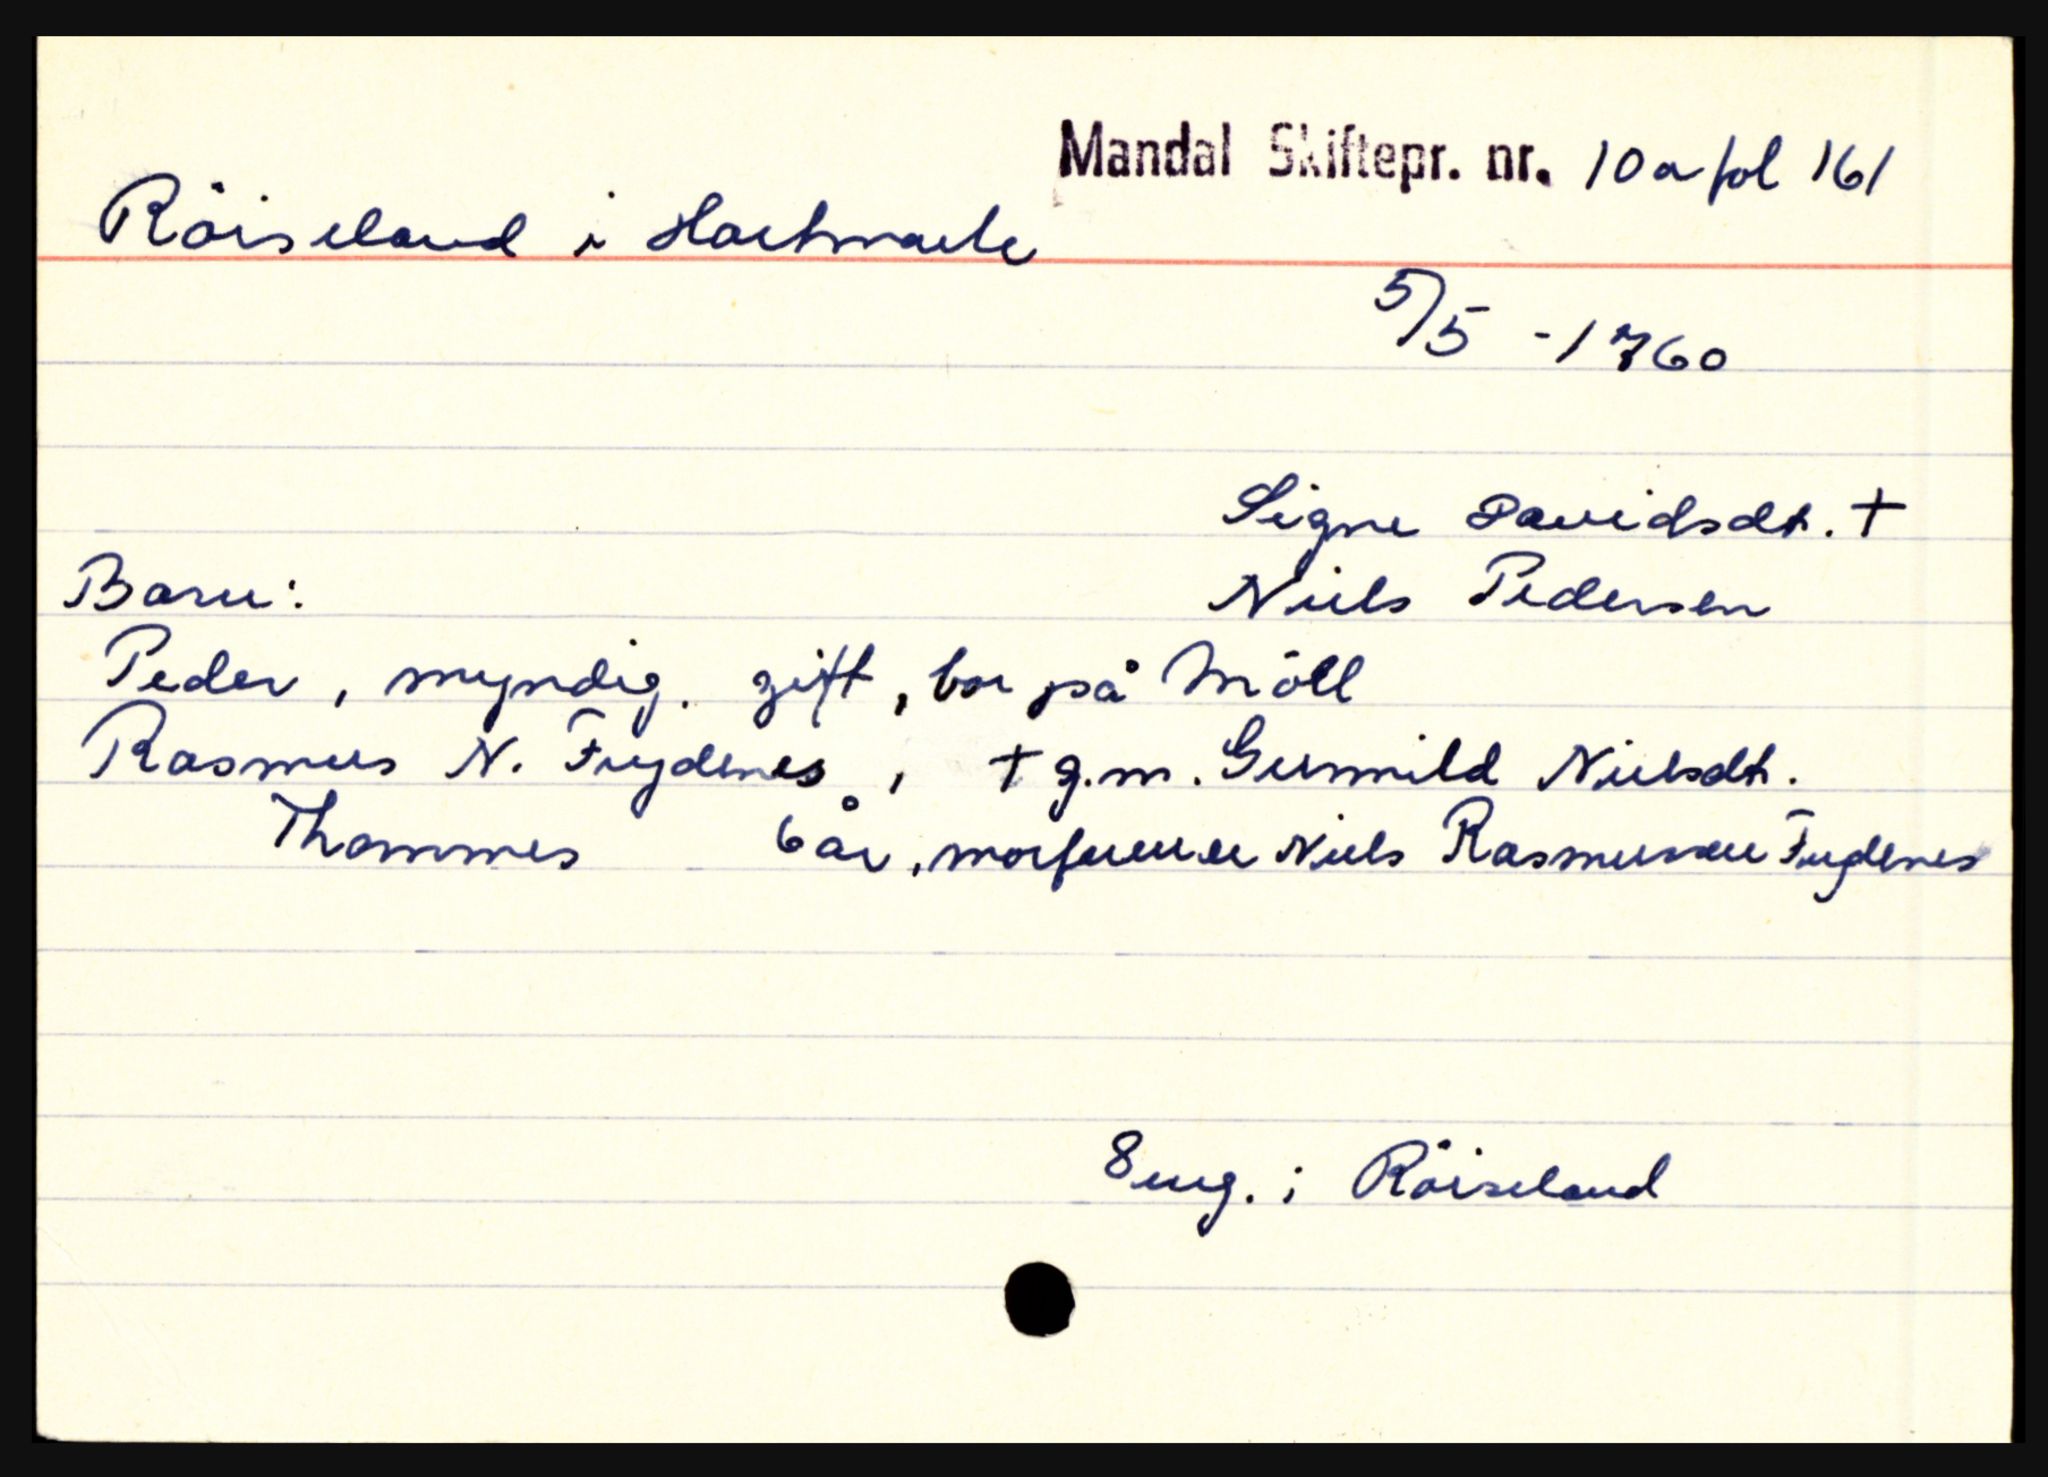 Mandal Skiftepr. nr. 10a fol 161
Röiseland i Hartmark
5/5 - 1760
Signe Davidsdt. +
Niels Pedersen
Barn:
Peder, myndig. gift, bor på Möll
Rasmus N. Frydenes, + g.m. Gunnild Nielsdt.
Thommes 6 år, morfaren er Niels Rasmussen Frydenes
8 eng. i Röiseland